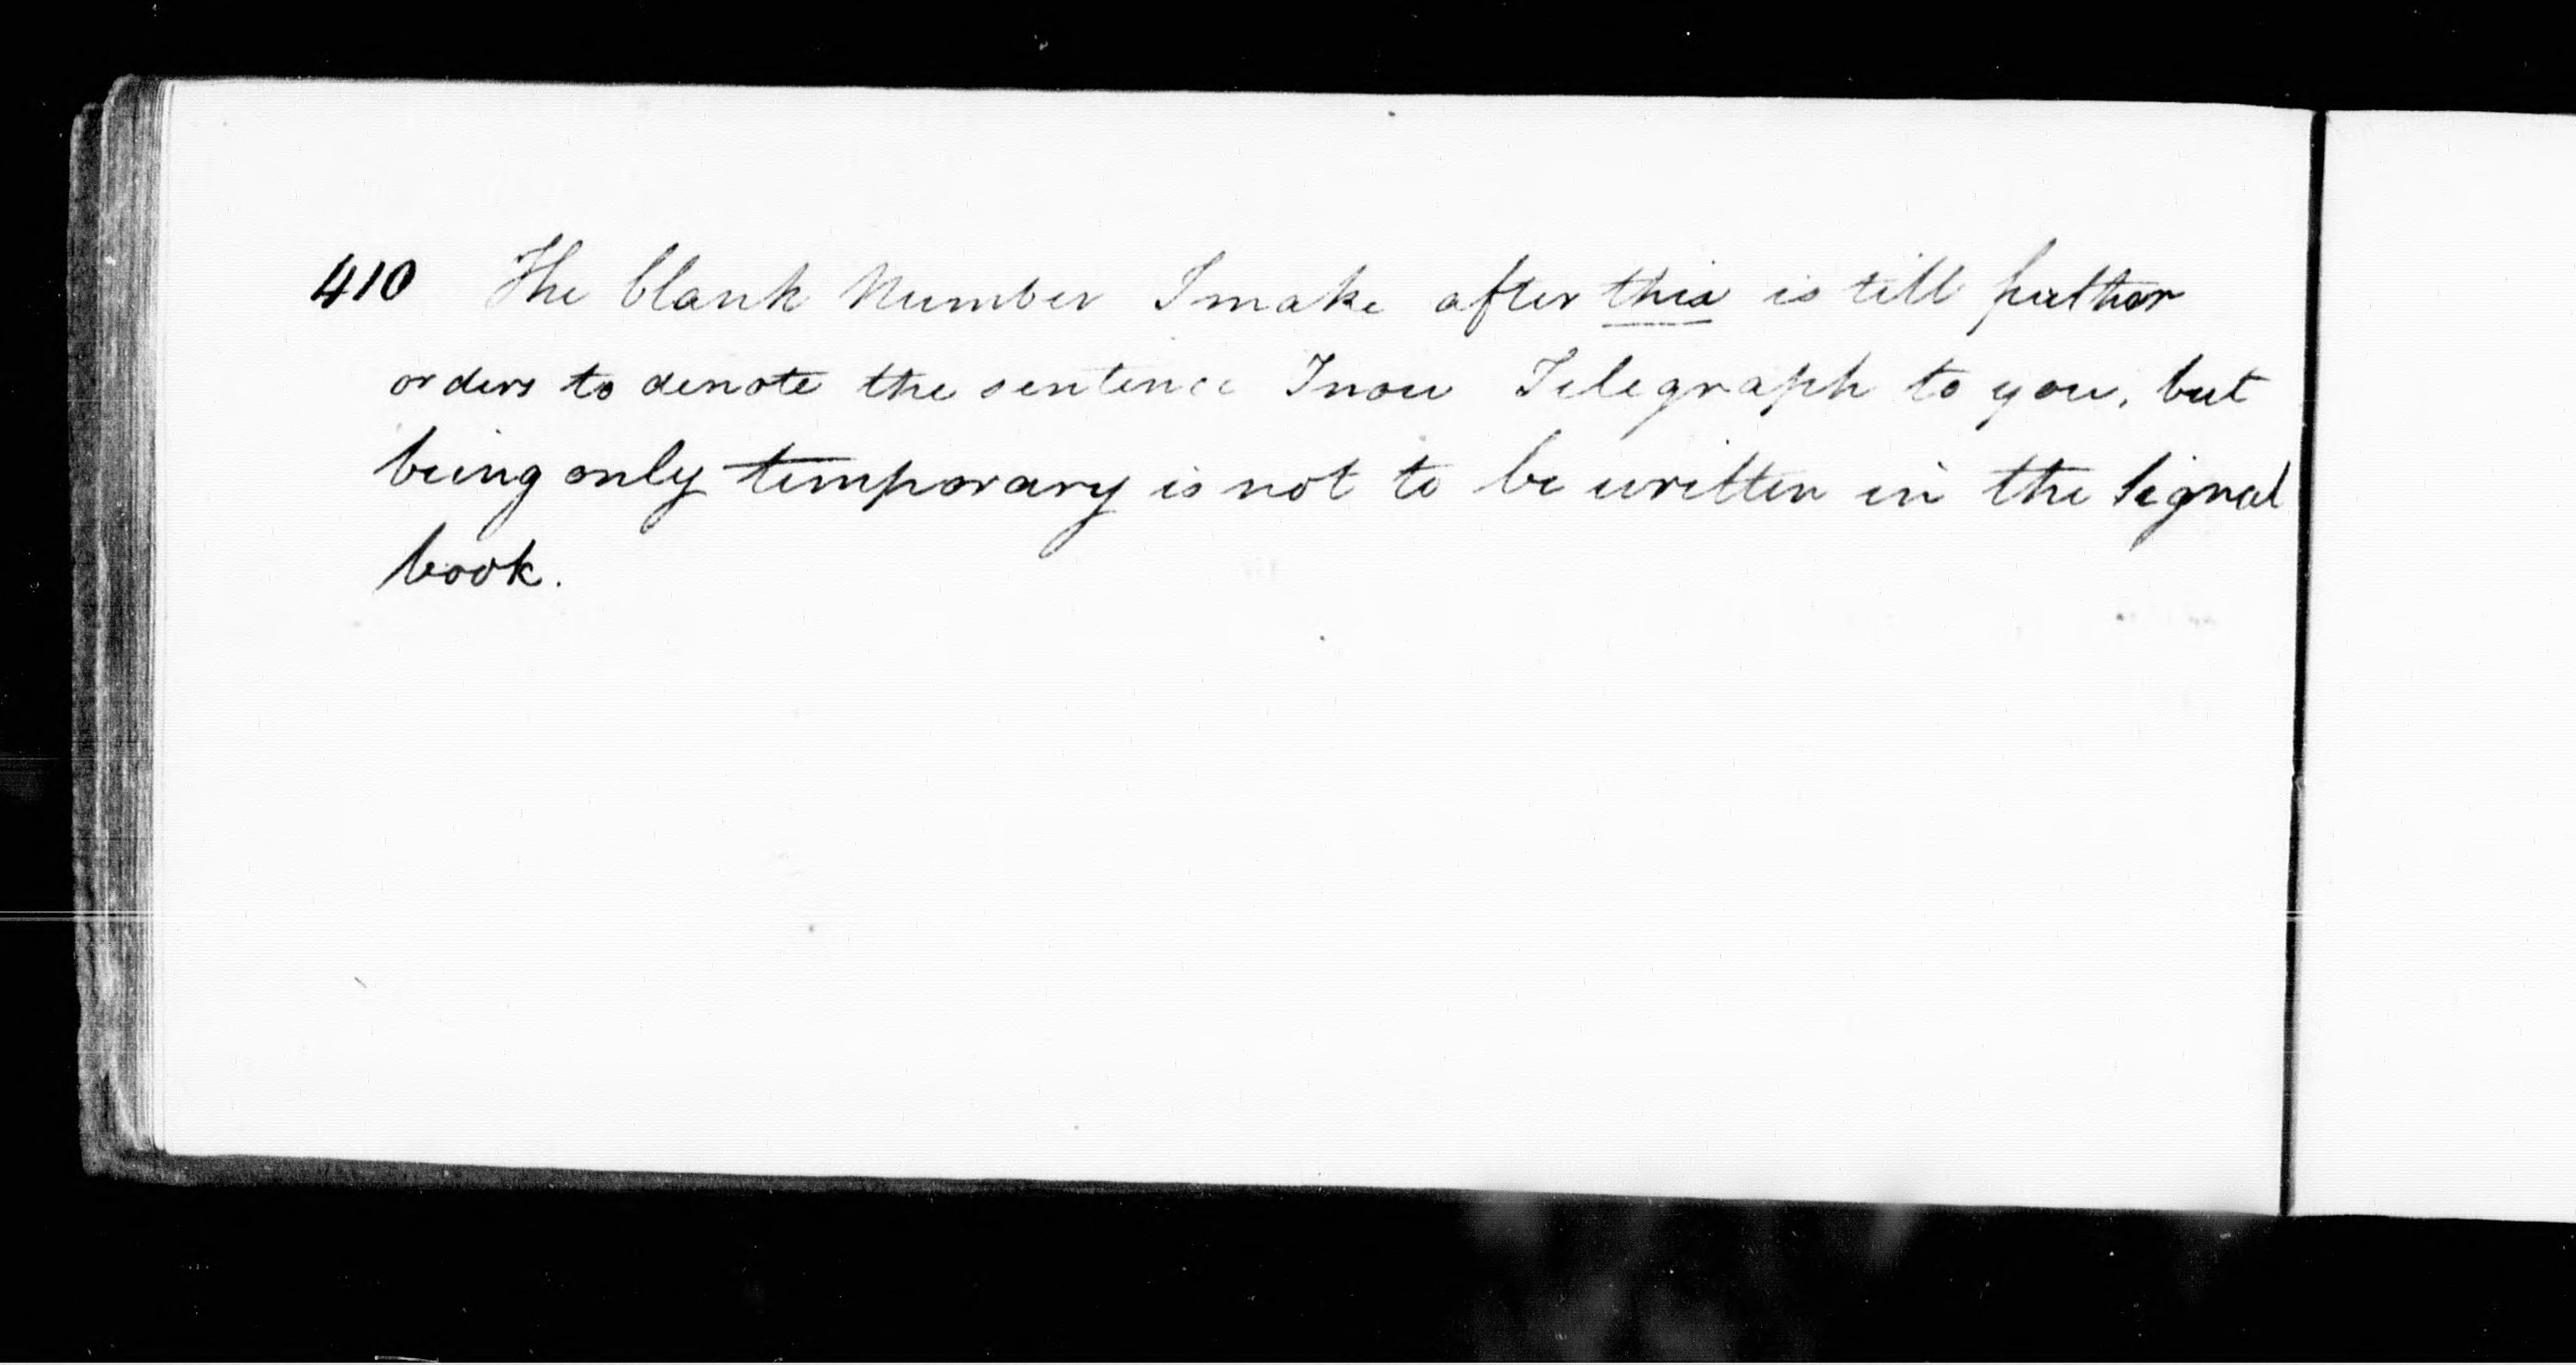 410 The blank Number I make after this is till futther
orders to denote the sentence I now Telegraph to you, but
being only temporary is not to be written in the Signal
book.